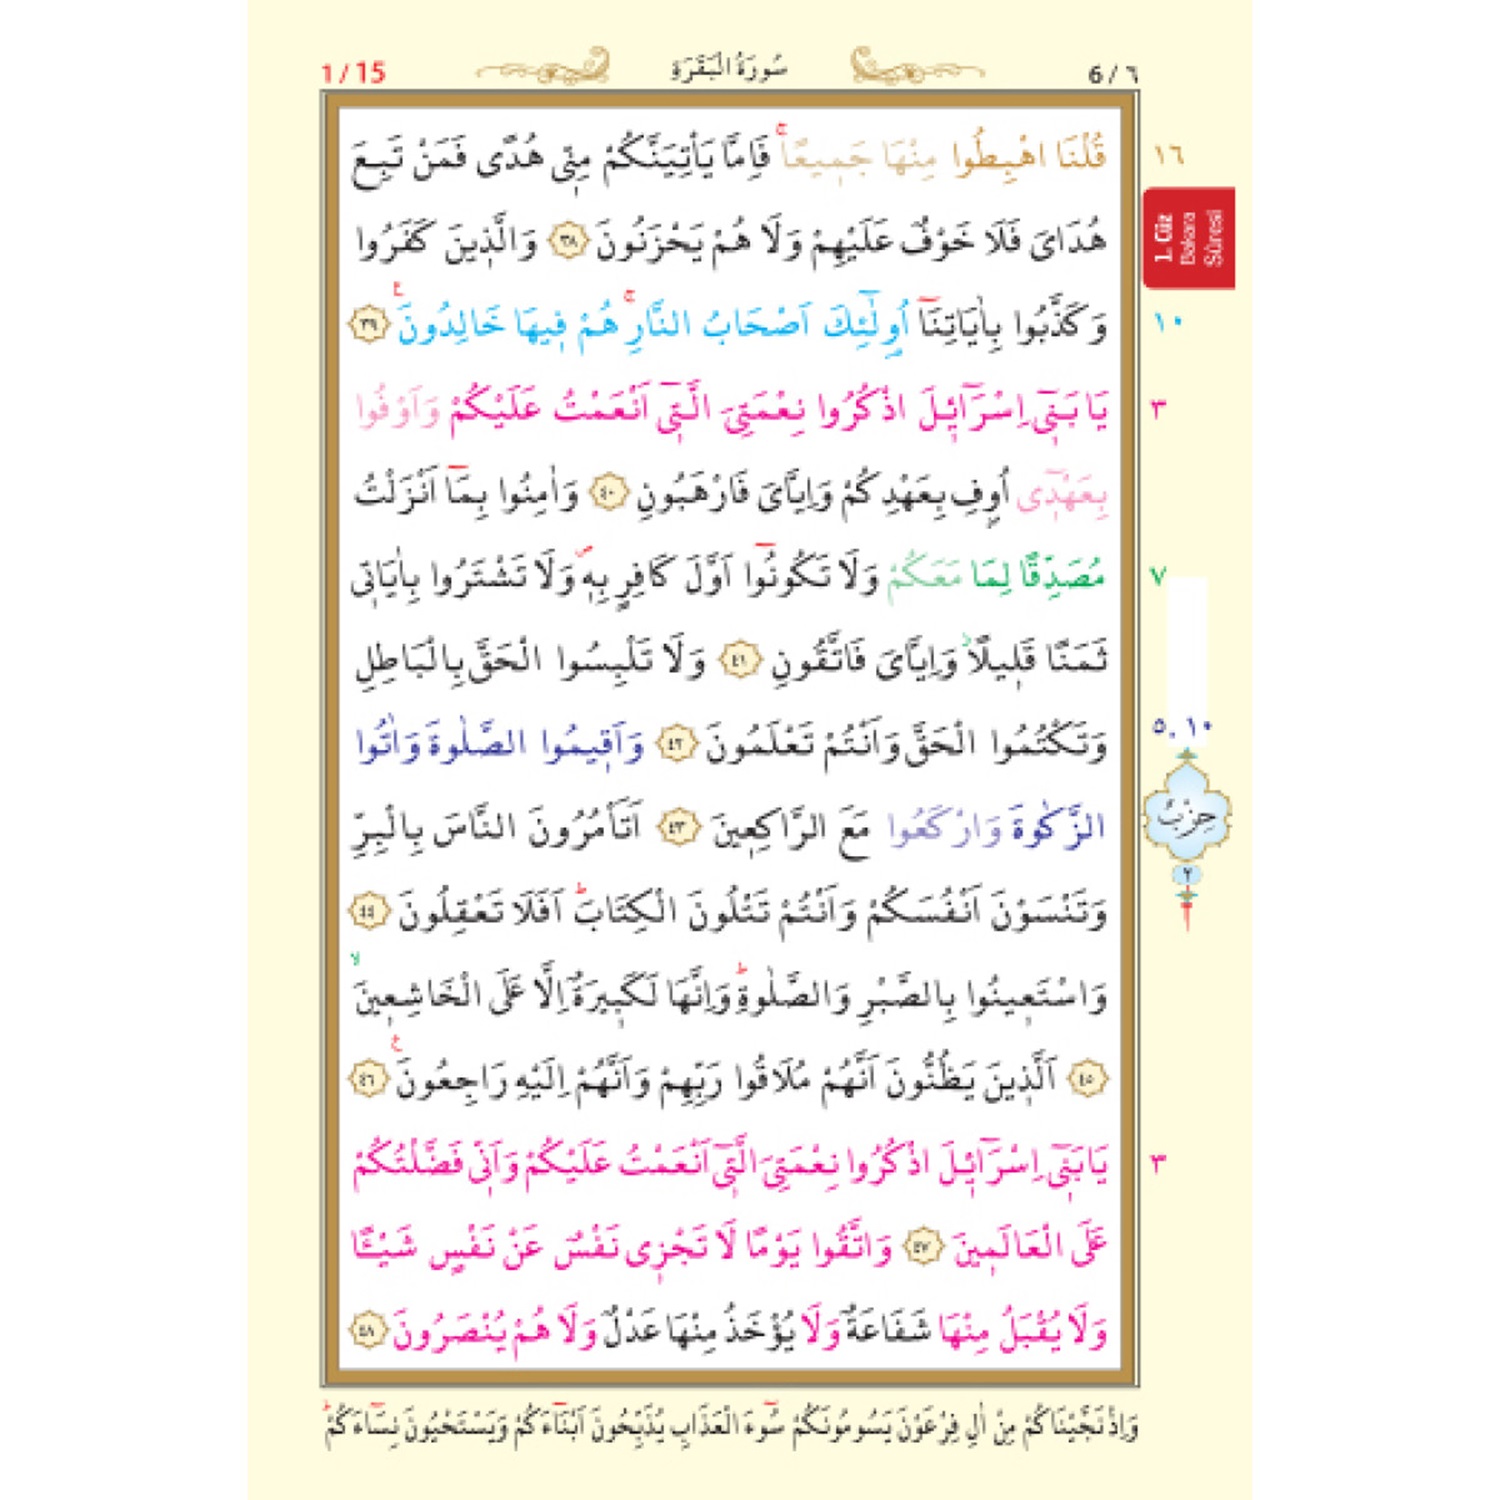 1 / 15
سُورَةُ الْبَقَرَةِ
6 / ٦
قُلْنَا اهْبِطُوا مِنْهَا جَمٖيعًاۚ فَاِمَّا يَأْتِيَنَّكُمْ مِنّٖى هُدًى فَمَنْ تَبِعَ
١٦
هُدَاىَ فَلَا خَوْفٌ عَلَيْهِمْ وَلَا هُمْ يَحْزَنُونَ ﴿٣٨﴾ وَالَّذٖينَ كَفَرُوا
1. Cüz
Bakara
Sûresi
وَكَذَّبُوا بِاٰيَاتِنَٓا اُولٰٓئِكَ اَصْحَابُ النَّارِۚ هُمْ فٖيهَا خَالِدُونَࣖ ﴿٣٩﴾
١٠
يَا بَنٖٓى اِسْرَٓائٖلَ اذْكُرُوا نِعْمَتِىَ الَّتٖٓى اَنْعَمْتُ عَلَيْكُمْ وَاَوْفُوا
٣
بِعَهْدٖٓى اُوفِ بِعَهْدِكُمْ وَاِيَّاىَ فَارْهَبُونِ ﴿٤٠﴾ وَاٰمِنُوا بِمَٓا اَنْزَلْتُ
مُصَدِّقًا لِمَا مَعَكُمْ وَلَا تَكُونُٓوا اَوَّلَ كَافِرٍ بِهٖࣕ وَلَا تَشْتَرُوا بِاٰيَاتٖى
٧
ثَمَنًا قَلٖيلًاؗ وَاِيَّاىَ فَاتَّقُونِ ﴿٤١﴾ وَلَا تَلْبِسُوا الْحَقَّ بِالْبَاطِلِ
وَتَكْتُمُوا الْحَقَّ وَاَنْتُمْ تَعْلَمُونَ ﴿٤٢﴾ وَاَقٖيمُوا الصَّلٰوةَ وَاٰتُوا
٥.١٠
الزَّكٰوةَ وَارْكَعُوا مَعَ الرَّاكِعٖينَ ﴿٤٣﴾ اَتَأْمُرُونَ النَّاسَ بِالْبِرِّ
حِزْبٌ
٢
وَتَنْسَوْنَ اَنْفُسَكُمْ وَاَنْتُمْ تَتْلُونَ الْكِتَابَؕ اَفَلَا تَعْقِلُونَ ﴿٤٤﴾
وَاسْتَعٖينُوا بِالصَّبْرِ وَالصَّلٰوةِؕ وَاِنَّهَا لَكَبٖيرَةٌ اِلَّا عَلَى الْخَاشِعٖينَۙ
﴿٤٥﴾ اَلَّذٖينَ يَظُنُّونَ اَنَّهُمْ مُلَاقُوا رَبِّهِمْ وَاَنَّهُمْ اِلَيْهِ رَاجِعُونَࣖ ﴿٤٦﴾
يَا بَنٖٓى اِسْرَٓائٖلَ اذْكُرُوا نِعْمَتِىَ الَّتٖٓى اَنْعَمْتُ عَلَيْكُمْ وَاَنّٖى فَضَّلْتُكُمْ
٣
عَلَى الْعَالَمٖينَ ﴿٤٧﴾ وَاتَّقُوا يَوْمًا لَا تَجْزٖى نَفْسٌ عَنْ نَفْسٍ شَيْـًٔا
وَلَا يُقْبَلُ مِنْهَا شَفَاعَةٌ وَلَا يُؤْخَذُ مِنْهَا عَدْلٌ وَلَا هُمْ يُنْصَرُونَ ﴿٤٨﴾
وَاِذْ نَجَّيْنَاكُمْ مِنْ اٰلِ فِرْعَوْنَ يَسُومُونَكُمْ سُٓوءَ الْعَذَابِ يُذَبِّحُونَ اَبْنَٓاءَكُمْ وَيَسْتَحْيُونَ نِسَٓاءَكُمْؕ